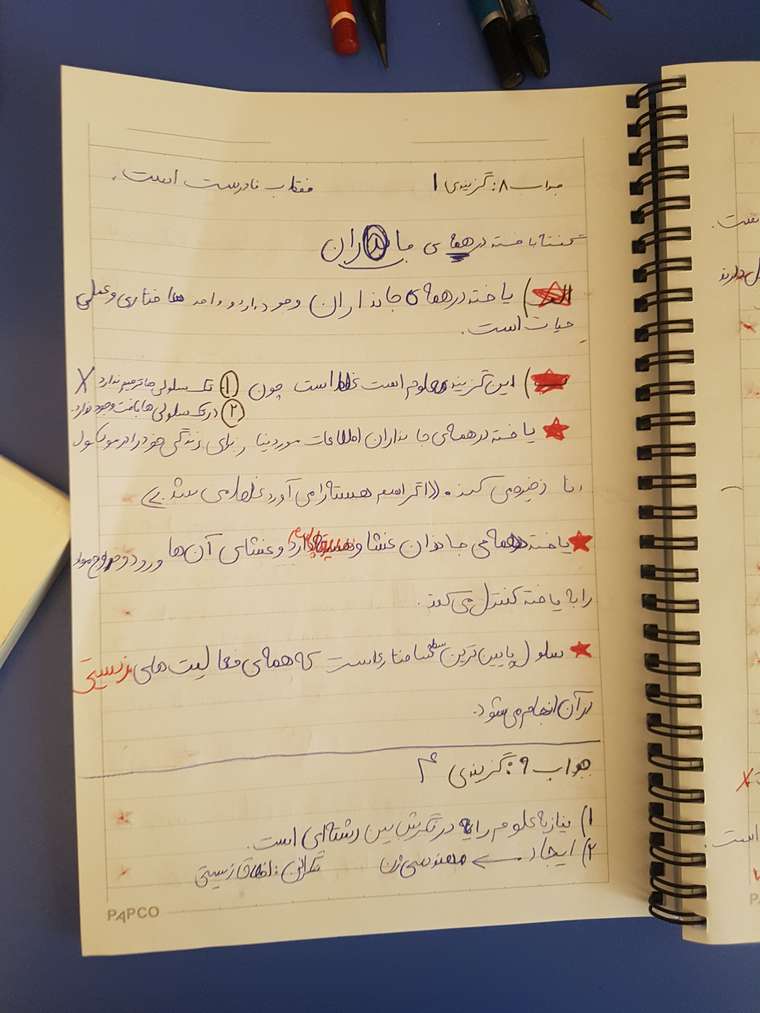 جواب ۸: گزینه‌ی ۱ فقط ب نادرست است.
گفته یاخته در همه‌ی جانداران
الف) یاخته در همه‌ی جانداران وجود دارد و واحد ساختاری و عملی
حیات است.
ب) این گزینه معلوم است غلط است چون ① تک سلولی ها ترمیم ندارد X
② در تک سلولی ها بافت وجود ندارد.
یاخته در همه‌ی جانداران اطلاعات مورد نیاز برای زندگی خود را در مولکول
دنا ذخیره می کند. ((اگر اسم هسته را می آورد غلط می شد))
یاخته همه‌ی جانداران غشا دارد و غشای آن ها ورود و خروج مواد
را به یاخته کنترل می کند.
سلول پایین ترین سطح ساختاری است که همه‌ی فعالیت های زیستی
در آن انجام می شود.
جواب ۹: گزینه‌ی ۴
۱) نیاز به علوم رایانه در نگرش بین رشته ای است.
۲) ایجاد مهندسی ژن نگرانی: اخلاق زیستی
PAPCO